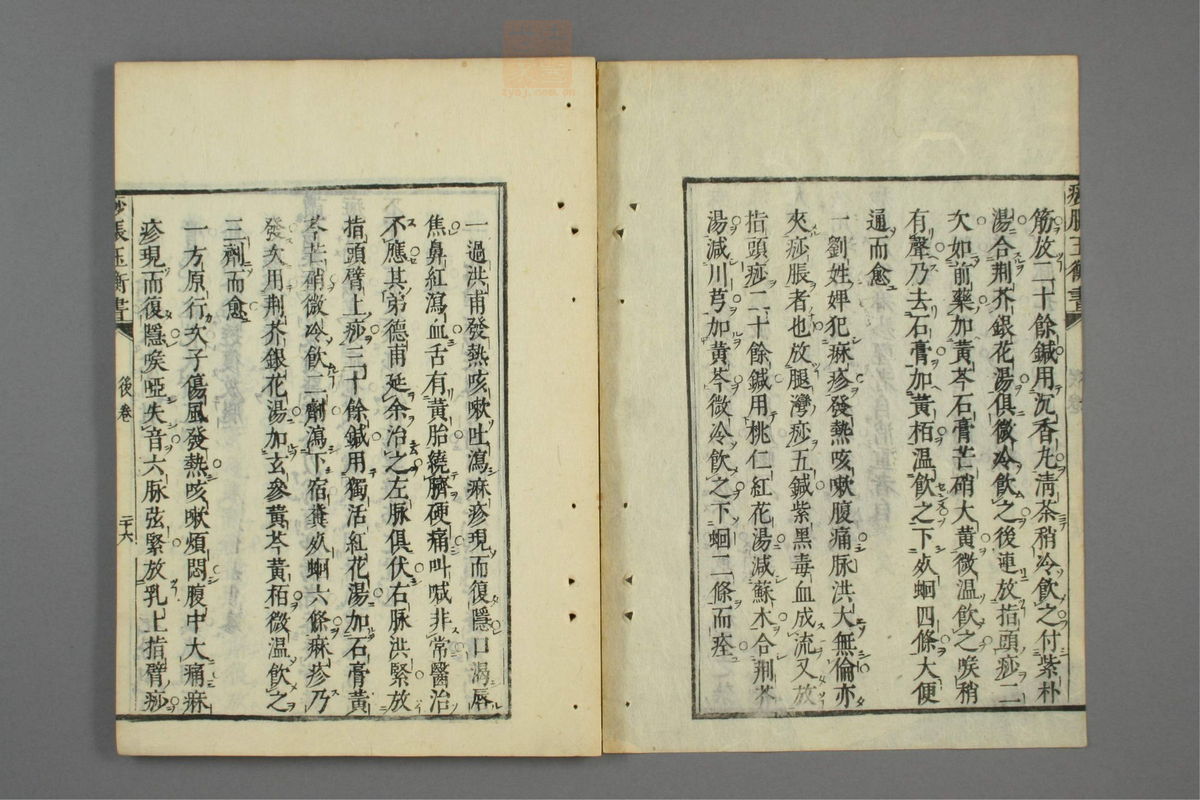 筋放二十餘鍼用沉香丸清茶稍冷飲之付紫朴
湯合荆芥銀花湯俱微冷飲之後連放指頭痧二
次如前藥加黃芩石膏芒硝大黃微温飲之喉稍
有聲乃去石膏加黃栢温飲之下死蛔四條大便
通而愈
一劉姓婢犯痳疹發熱咳嗽腹痛脉洪大無倫亦
夾痧脹者也放腿灣痧五鍼紫黑毒血成流又放
指頭痧二十餘鍼用桃仁紅花湯減蘇木合荆芥
湯減川芎加黃芩微冷飲之下蛔二條而痊
一過洪甫發熱咳嗽吐瀉痳疹現而復隱口渴唇
焦鼻紅瀉血舌有黃胎繞臍硬痛叫喊非常醫治
不應其弟德甫延余治之左脉俱伏右脉洪緊放
指頭臂上痧三十餘鍼用獨活紅花湯加石膏黃
芩芒硝微冷飲二劑瀉下宿糞死蛔六條痳疹乃
發次用荆芥銀花湯加玄參黃芩黃栢微温飲之
三劑而愈
一方原行次子傷風發熱咳嗽煩悶腹中大痛痳
疹現而復隱喉啞失音六脉弦緊放乳上指臂痧
痧脹玉衡書
後卷
二十六